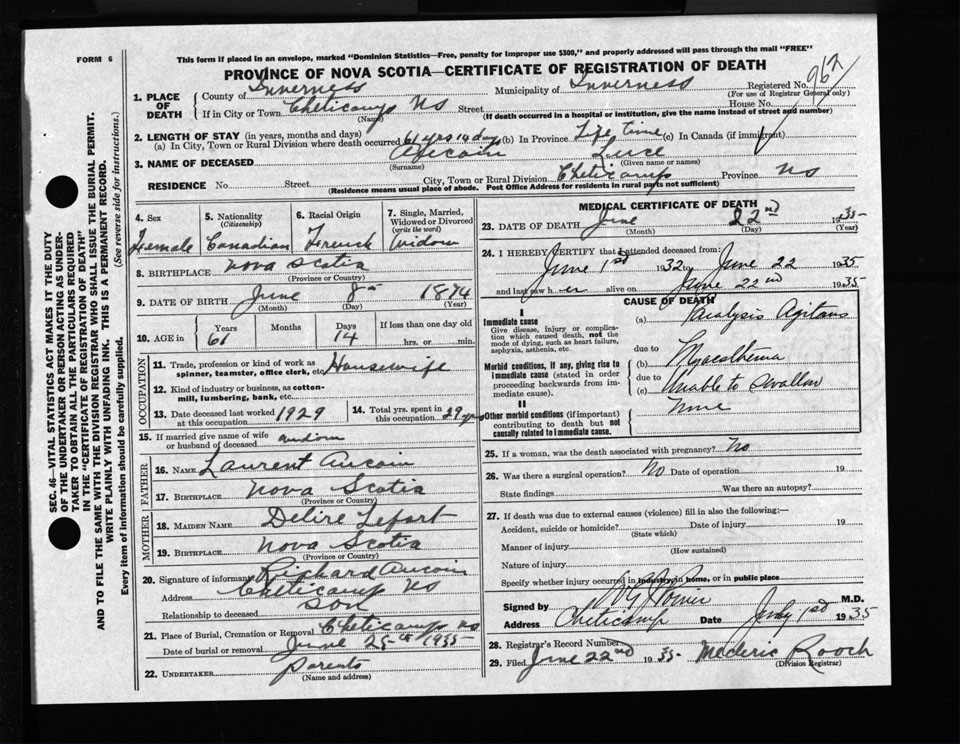 This form if placed in an envelope, marked "Dominion Statistics—Free, penalty for improper use $300," and properly addressed will pass through the mail "FREE"
FORM 6
PROVINCE OF NOVA SCOTIA—CERTIFICATE OF REGISTRATION OF DEATH
1. PLACE OF DEATH
County of Inverness Municipality of Inverness Registered No. 962
(For use of Registrar General only)
If in City or Town Cheticamp NS Street House No.
(Name) (If death occurred in a hospital or institution, give the name instead of street and number)
2. LENGTH OF STAY (in years, months and days)
(a) In City, Town or Rural Division where death occurred 61 yrs 14 days (b) In Province Life time (c) In Canada (if immigrant)
3. NAME OF DECEASED Aucoin Luce
(Surname) (Given name or names)
RESIDENCE No. Street City, Town or Rural Division Cheticamp Province NS
(Residence means usual place of abode. Post Office Address for residents in rural parts not sufficient)
4. Sex Female
5. Nationality (Citizenship) Canadian
6. Racial Origin French
7. Single, Married, Widowed or Divorced (write the word) Widow
8. BIRTHPLACE Nova Scotia
(Province or Country)
9. DATE OF BIRTH June 8 1874
(Month) (Day) (Year)
10. AGE in Years 61 Months Days 14 If less than one day old hrs. or min.
OCCUPATION
11. Trade, profession or kind of work as spinner, teamster, office clerk, etc. Housewife
12. Kind of industry or business, as cotton-mill, lumbering, bank, etc.
13. Date deceased last worked at this occupation 1929
14. Total yrs. spent in this occupation 29 yrs
15. If married give name of wife or husband of deceased widow
FATHER
16. NAME Laurent Aucoin
17. BIRTHPLACE Nova Scotia
(Province or Country)
MOTHER
18. MAIDEN NAME Delire Lefort
19. BIRTHPLACE Nova Scotia
(Province or Country)
20. Signature of informant Richard Aucoin
Address Cheticamp NS
Relationship to deceased Son
21. Place of Burial, Cremation or Removal Cheticamp NS
Date of burial or removal June 25th 1935
22. UNDERTAKER Parents
(Name and address)
MEDICAL CERTIFICATE OF DEATH
23. DATE OF DEATH June 22nd 1935
(Month) (Day) (Year)
24. I HEREBY CERTIFY that I attended deceased from:
June 1st 1932 to June 22 1935
and last saw her alive on June 22nd 1935
CAUSE OF DEATH
I
Immediate cause
Give disease, injury or complication which caused death, not the mode of dying, such as heart failure, asphyxia, asthenia, etc.
(a) Paralysis Agitans
due to
Morbid conditions, if any, giving rise to immediate cause (stated in order proceeding backwards from immediate cause).
(b) Myaesthema
due to
(c) Unable to Swallow
II
Other morbid conditions (if important) contributing to death but not causally related to immediate cause.
None
25. If a woman, was the death associated with pregnancy? No
26. Was there a surgical operation? No Date of operation 19
State findings Was there an autopsy?
27. If death was due to external causes (violence) fill in also the following:—
Accident, suicide or homicide? Date of injury 19
(State which)
Manner of injury
(How sustained)
Nature of injury
Specify whether injury occurred in industry, in home, or in public place
Signed by M.D.
Address Cheticamp Date July 1st 1935
28. Registrar's Record Number
29. Filed June 22nd 1935 Mederic Roach
(Division Registrar)
SEC. 46—VITAL STATISTICS ACT MAKES IT THE DUTY
OF THE UNDERTAKER OR PERSON ACTING AS UNDER-
TAKER TO OBTAIN ALL THE PARTICULARS REQUIRED
IN THE "CERTIFICATE OF REGISTRATION OF DEATH"
AND TO FILE THE SAME WITH THE DIVISION REGISTRAR WHO SHALL ISSUE THE BURIAL PERMIT.
WRITE PLAINLY WITH UNFADING INK. THIS IS A PERMANENT RECORD.
(See reverse side for instructions.)
Every item of information should be carefully supplied.